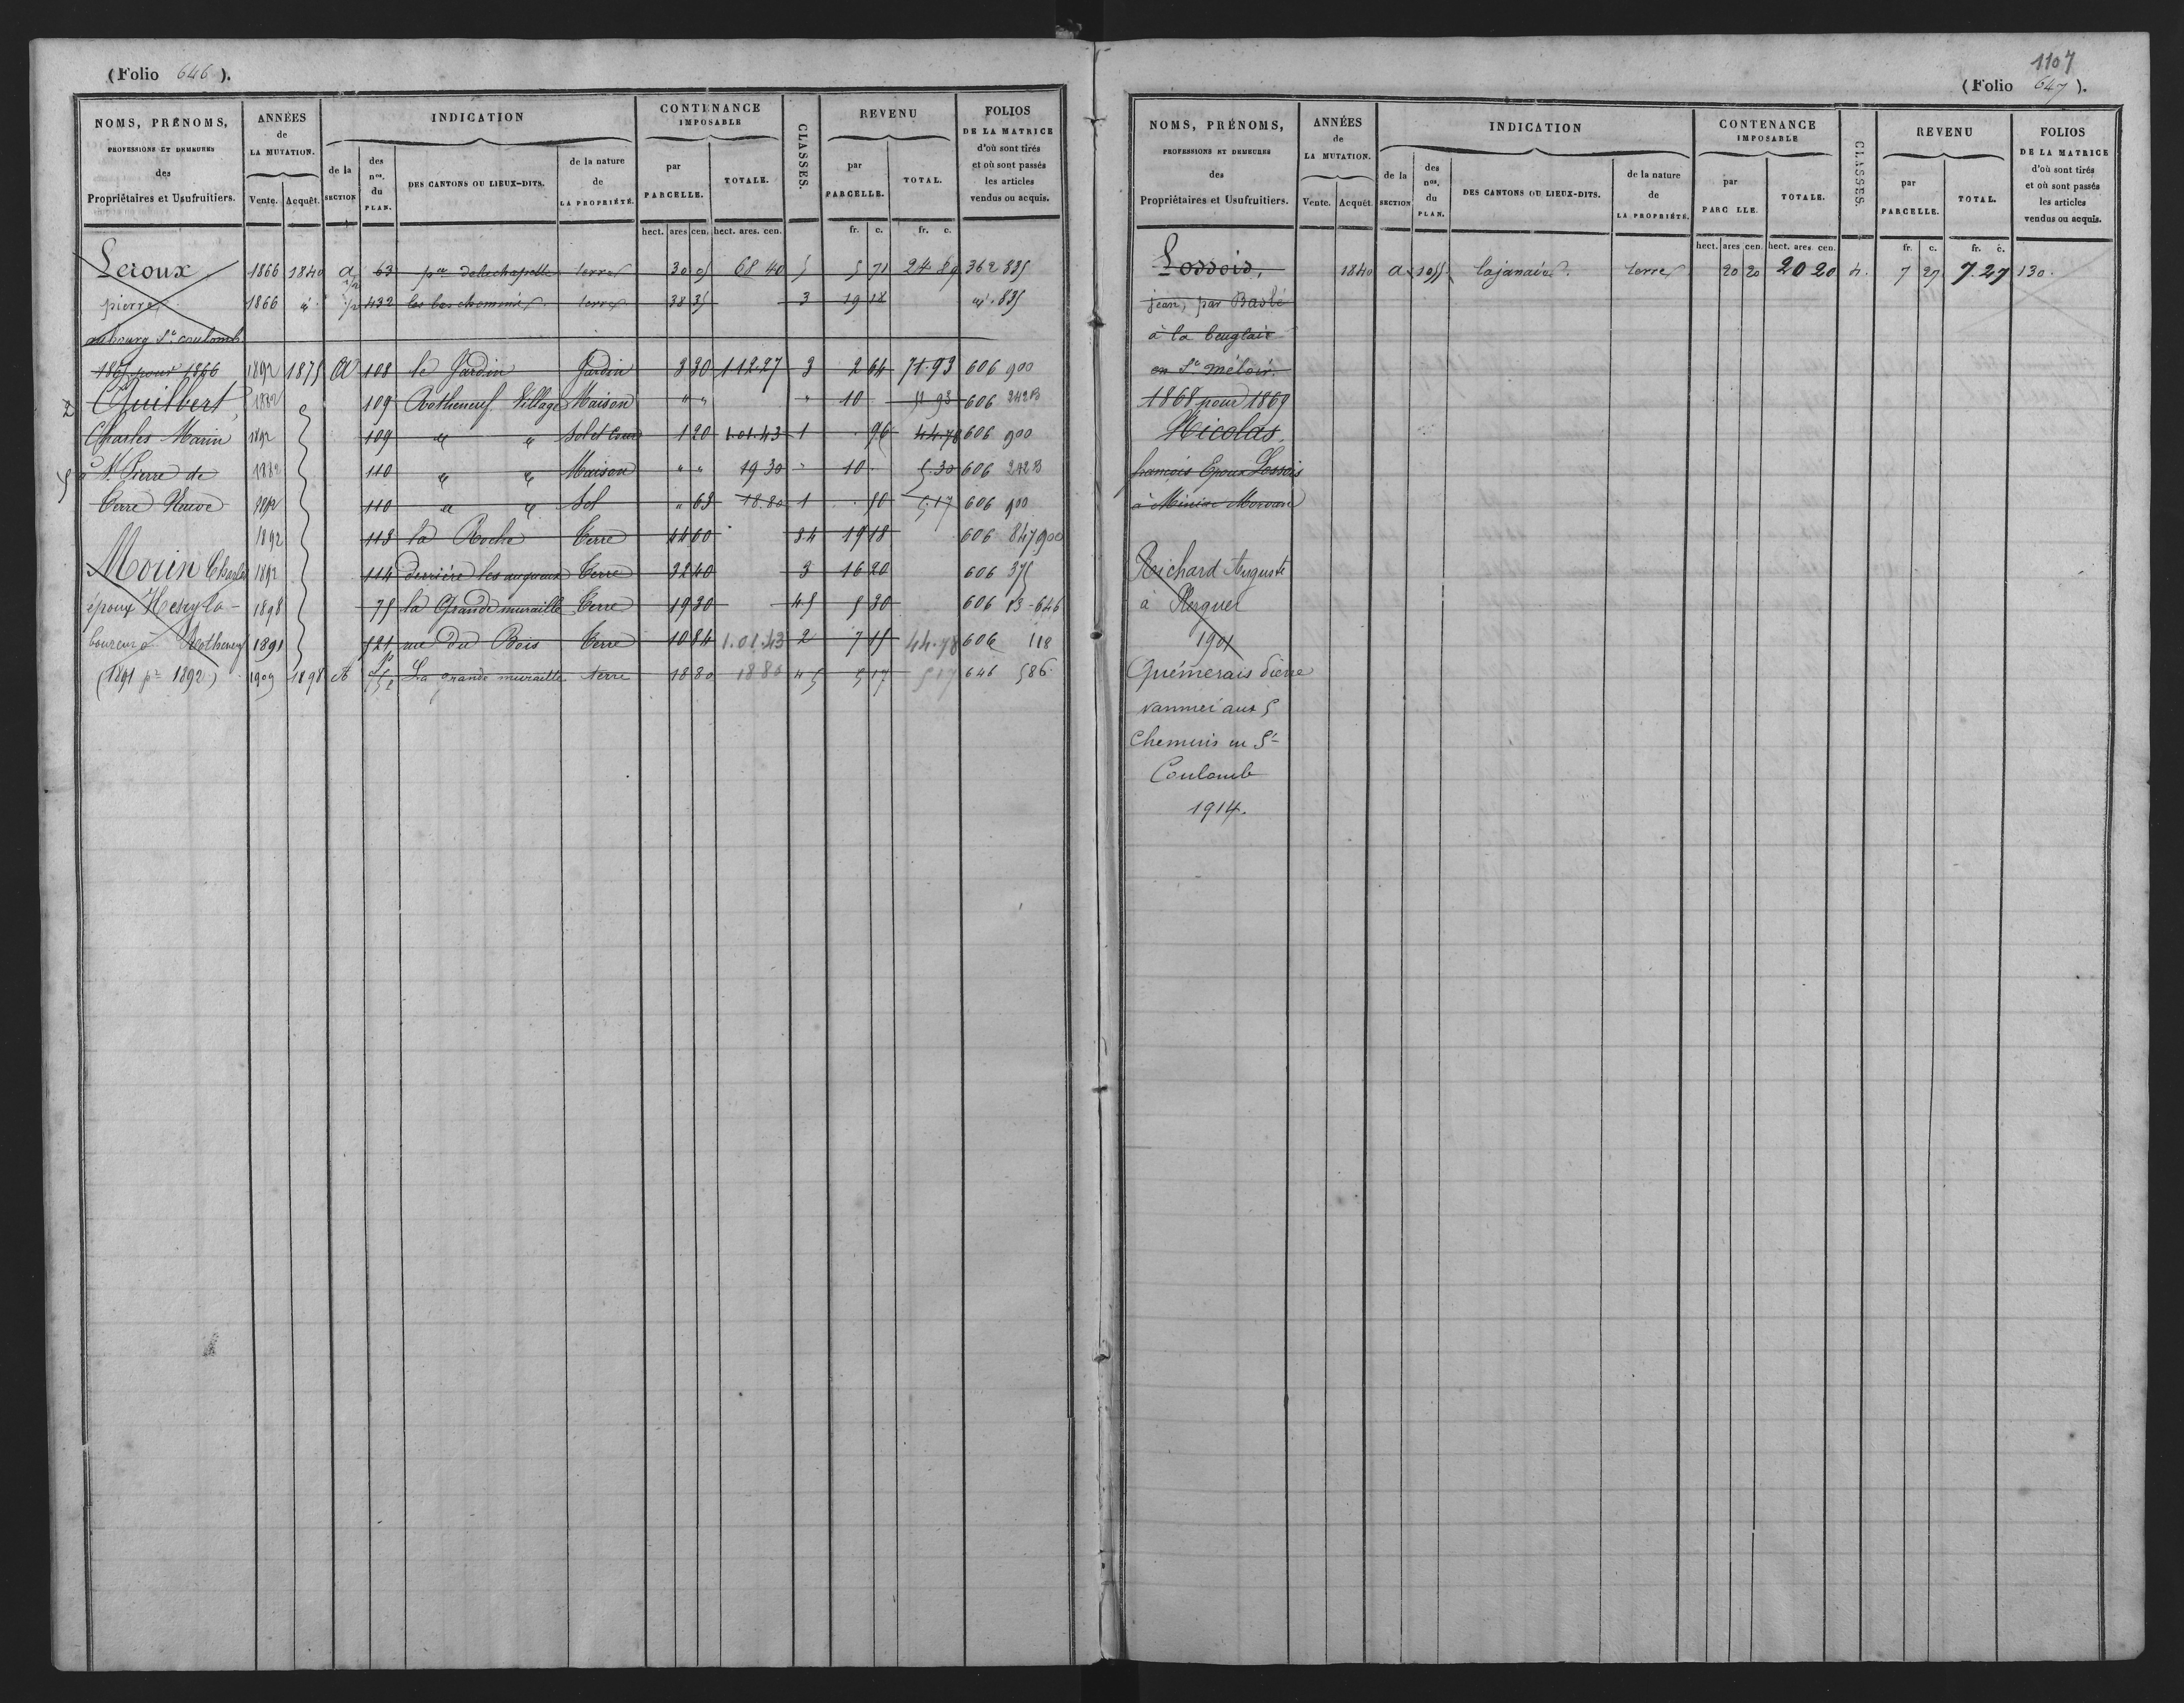 (Folio 646).
NOMS, PRÉNOMS,
PROFESSIONS ET DEMEURES
des
Propriétaires et Usufruitiers.
ANNÉES
de
LA MUTATION.
Vente. Acquêt.
INDICATION
de la
SECTION
des
nos.
du
PLAN.
DES CANTONS OU LIEUX-DITS.
de la nature
de
LA PROPRIÉTÉ.
CONTENANCE
IMPOSABLE
par
PARCELLE.
TOTALE.
CLASSES.
REVENU
par
PARCELLE.
TOTAL.
FOLIOS
DE LA MATRICE
d'où sont tirés
et où sont passés
les articles
vendus ou acquis.
hect. ares cen. hect. ares. cen. fr. c. fr. c.
Leroux 1866 1840 a 63 pce delachapelle terre 30 05 68 40 5 5 71 24 89 362 835
pierre 1866 " 1/2 432 les bas chemins terre 38 35 3 19 18 " 835
aubourg St coulomb
1865 pour 1866 1892 1875 A 108 le Jardin Jardin 3 30 1 12 27 3 2 64 71.93 606 900
Quibert 1882 109 Rotheneuf Village Maison " " " 10 51 93 606 242B
Charles Marin 1892 109 " " Sol et Cour 1 20 1.01.43 1 . 96 44.78 606 900
à St Pierre de 1882 110 " " Maison " " 19 30 " 10 . 5.30 606 242B
Terre Neuve 1892 110 " " Sol " 63 18.80 1 . 50 5.17 606 900
1892 113 la Roche Terre 44 00 3 4 19 18 606 847 900
Morin Charles 1892 114 derrière les Terre 32 40 3 16 20 606 375
époux Hesry la- 1898 75 la Grande muraille Terre 19 30 4 5 5 30 606 13-646
boureur à Rotheneuf 1891 521 rue du Bois Terre 10 84 1.01.43 2 7 15 44.78 606 118
(1891 pr 1892) 1909 1898 A 75 La grande muraille terre 18 80 18 80 4 5 5 17 5 17 646 586
1107
(Folio 647).
NOMS, PRÉNOMS,
PROFESSIONS ET DEMEURES
des
Propriétaires et Usufruitiers.
ANNÉES
de
LA MUTATION.
Vente. Acquêt.
INDICATION
de la
SECTION
des
nos.
du
PLAN.
DES CANTONS OU LIEUX-DITS.
de la nature
de
LA PROPRIÉTÉ.
CONTENANCE
IMPOSABLE
par
PARC LLE.
TOTALE.
CLASSES.
REVENU
par
PARCELLE.
TOTAL.
FOLIOS
DE LA MATRICE
d'où sont tirés
et où sont passés
les articles
vendus ou acquis.
hect. ares cen. hect. ares. cen. fr. c. fr. c.
Lossois, 1840 a 1055 lajanaie terre 20 20 20 20 4. 7 27 7.27 130.
jean, par Baslé
à la beuglais
en St méloir
1868 pour 1869
Nicolas,
francois Epoux Lossois
à Miniac Morvan
Richard Auguste
à Plerguer
1901
Quémerais Pierre
vannier aux 5
Chemins en St
Coulomb
1914.